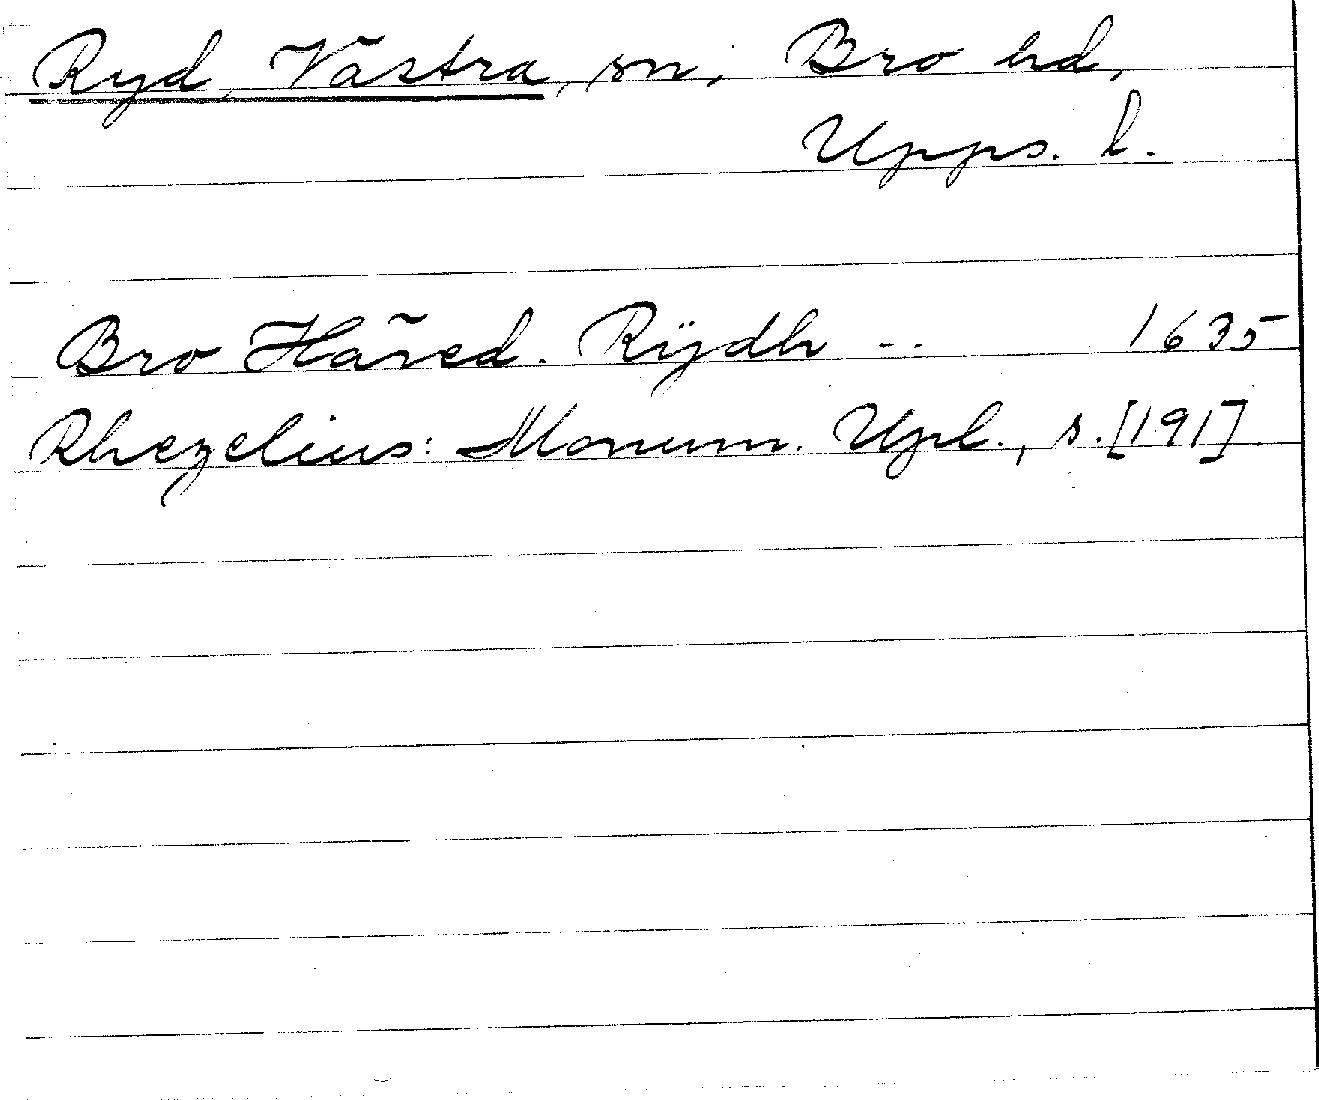 Ryd, Västra, sn, Bro hd,
Upps. l.
Bro Häred. Rÿdh -- 1635
Rhezelius: Monum. Upl., s. [191].